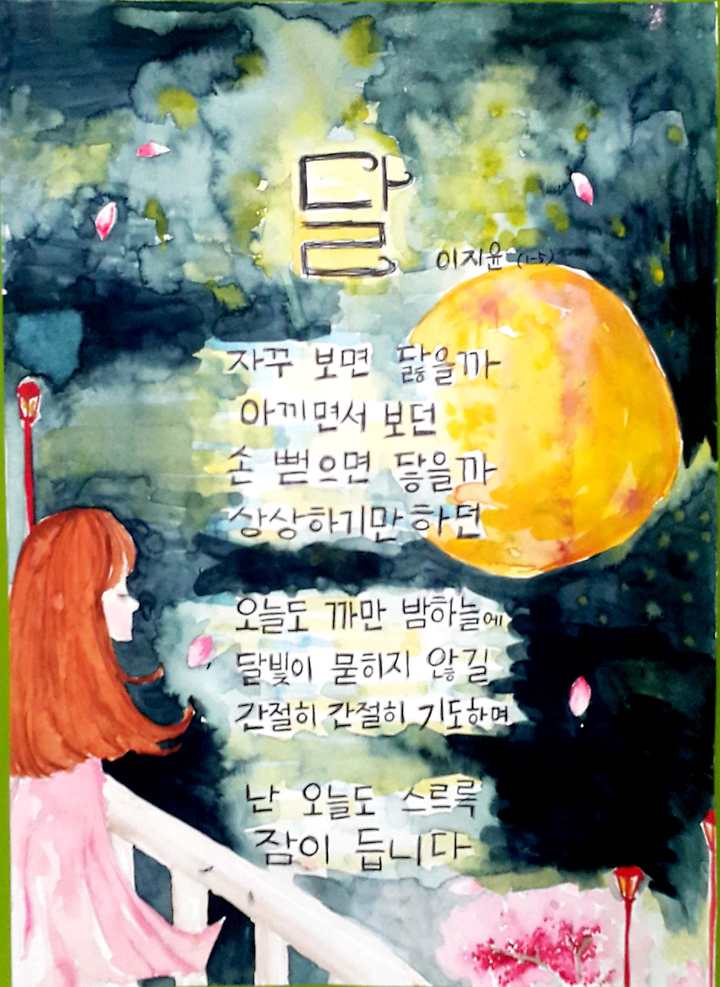 달
이지윤 (1-5)
자꾸 보면 닳을까
아끼면서 보던
손 뻗으면 닿을까
상상하기만 하던
오늘도 까만 밤하늘에
달빛이 묻히지 않길
간절히 간절히 기도하며
난 오늘도 스르륵
잠이 듭니다